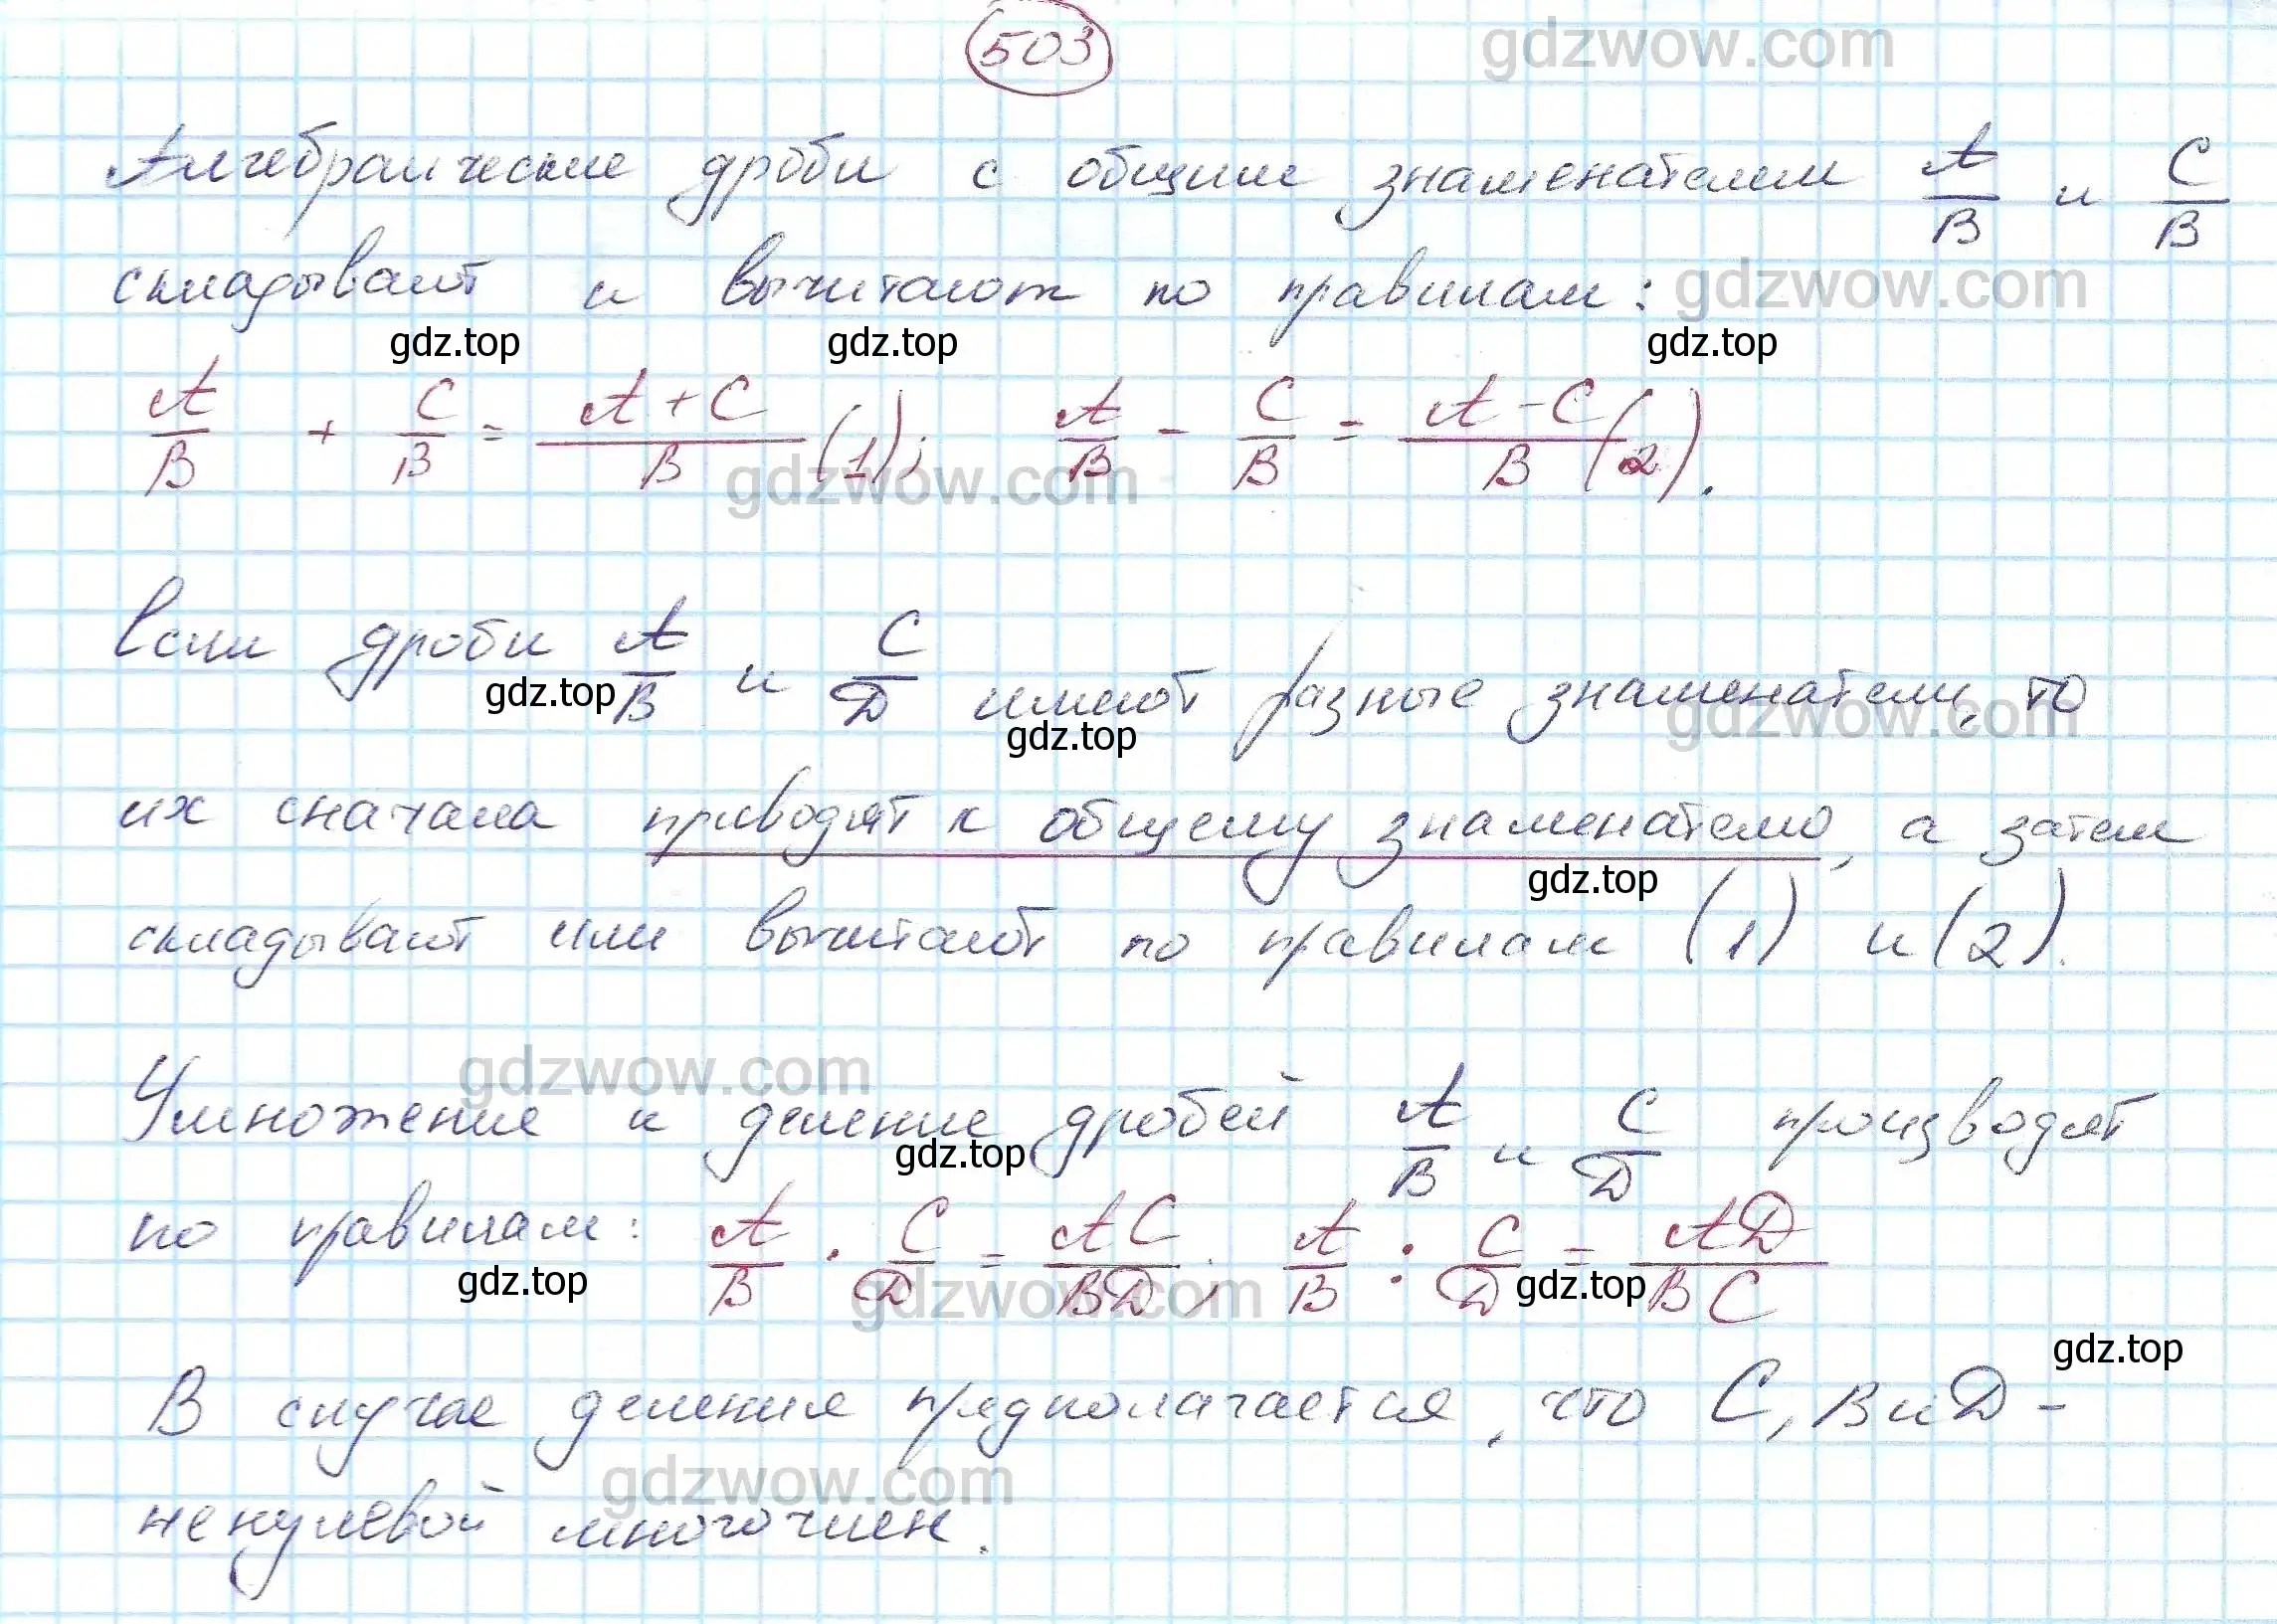 503
gdzwow.com
Алгебраические дроби с общим знаменателем A/B и C/B
складывают и вычитают по правилам:
gdzwow.com
gdz.top gdz.top gdz.top
A/B + C/B = A+C/B (1); A/B - C/B = A-C/B (2).
gdzwow.com
Если дроби A/B и C/D имеют разные знаменатели, то
gdz.top gdz.top gdzwow.com
их сначала приводят к общему знаменателю, а затем
gdz.top
складывают или вычитают по правилам (1) и (2).
gdzwow.com
Умножение и деление дробей A/B и C/D производят
gdz.top
по правилам: A/B · C/D = AC/BD, A/B : C/D = AD/BC
gdz.top gdzwow.com gdz.top
gdz.top
В случае деления предполагается, что C, B и D -
gdzwow.com
ненулевой многочлен.